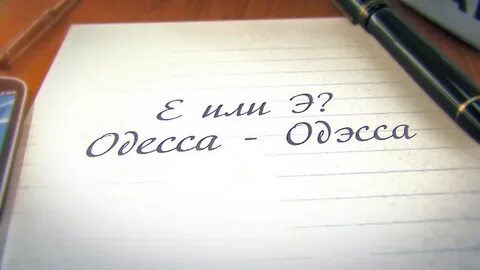 Е или Э?
Одесса - Одэсса